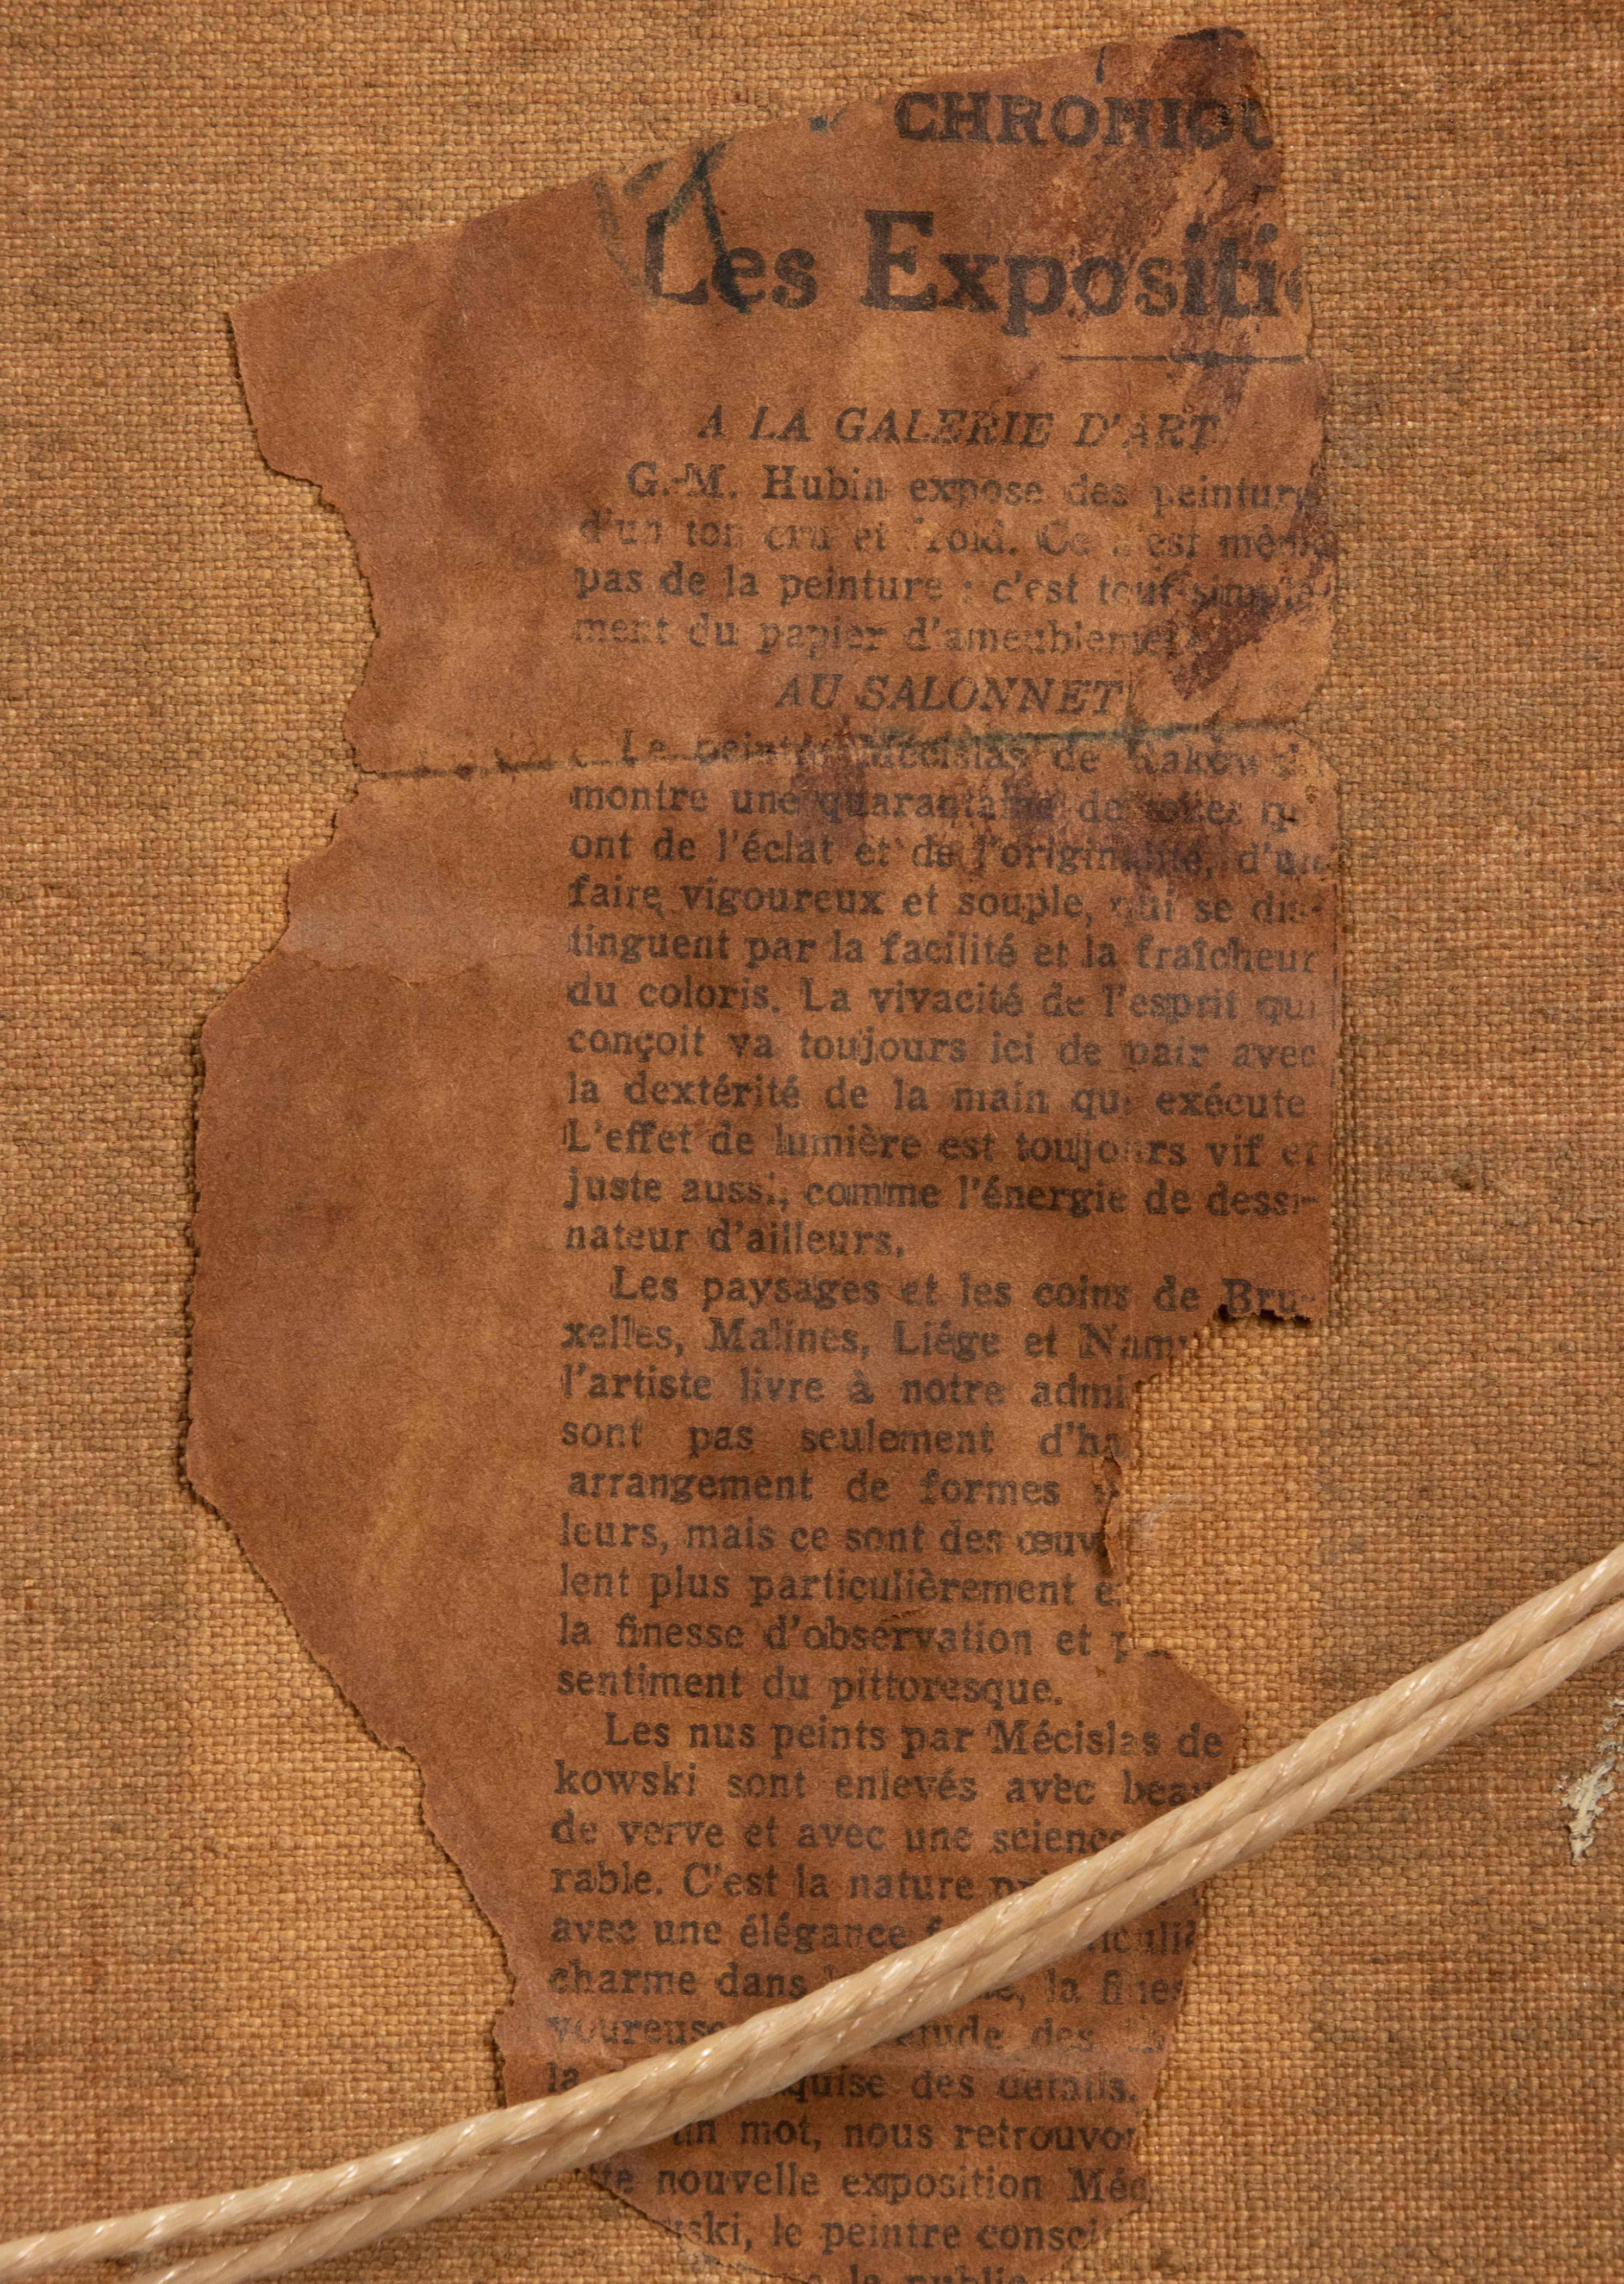 CHRONIQU
Les Expositi
A LA GALERIE D'ART
G.-M. Hubin expose des peintur
d'un ton cru et froid. Ce n'est mêm
pas de la peinture : c'est tout simple-
ment du papier d'ameublement
AU SALONNET
Le peintre Mécislas de Rakowsk
montre une quarantaine de toiles qu
ont de l'éclat et de l'originalité, d'un
faire vigoureux et souple, qui se dis-
tinguent par la facilité et la fraîcheur
du coloris. La vivacité de l'esprit qui
conçoit va toujours ici de pair avec
la dextérité de la main qui exécute
L'effet de lumière est toujours vif et
juste aussi, comme l'énergie de dessi-
nateur d'ailleurs.
Les paysages et les coins de Bru-
xelles, Malines, Liége et Namu
l'artiste livre à notre admi
sont pas seulement d'ha
arrangement de formes
leurs, mais ce sont des œuv
lent plus particulièrement
la finesse d'observation et
sentiment du pittoresque.
Les nus peints par Mécislas de
kowski sont enlevés avec beau
de verve et avec une science
rable. C'est la nature
avec une élégance
charme dans la fines
voureuse des
la quise des détails.
un mot, nous retrouvon
nouvelle exposition Méc
ski, le peintre consci
la public